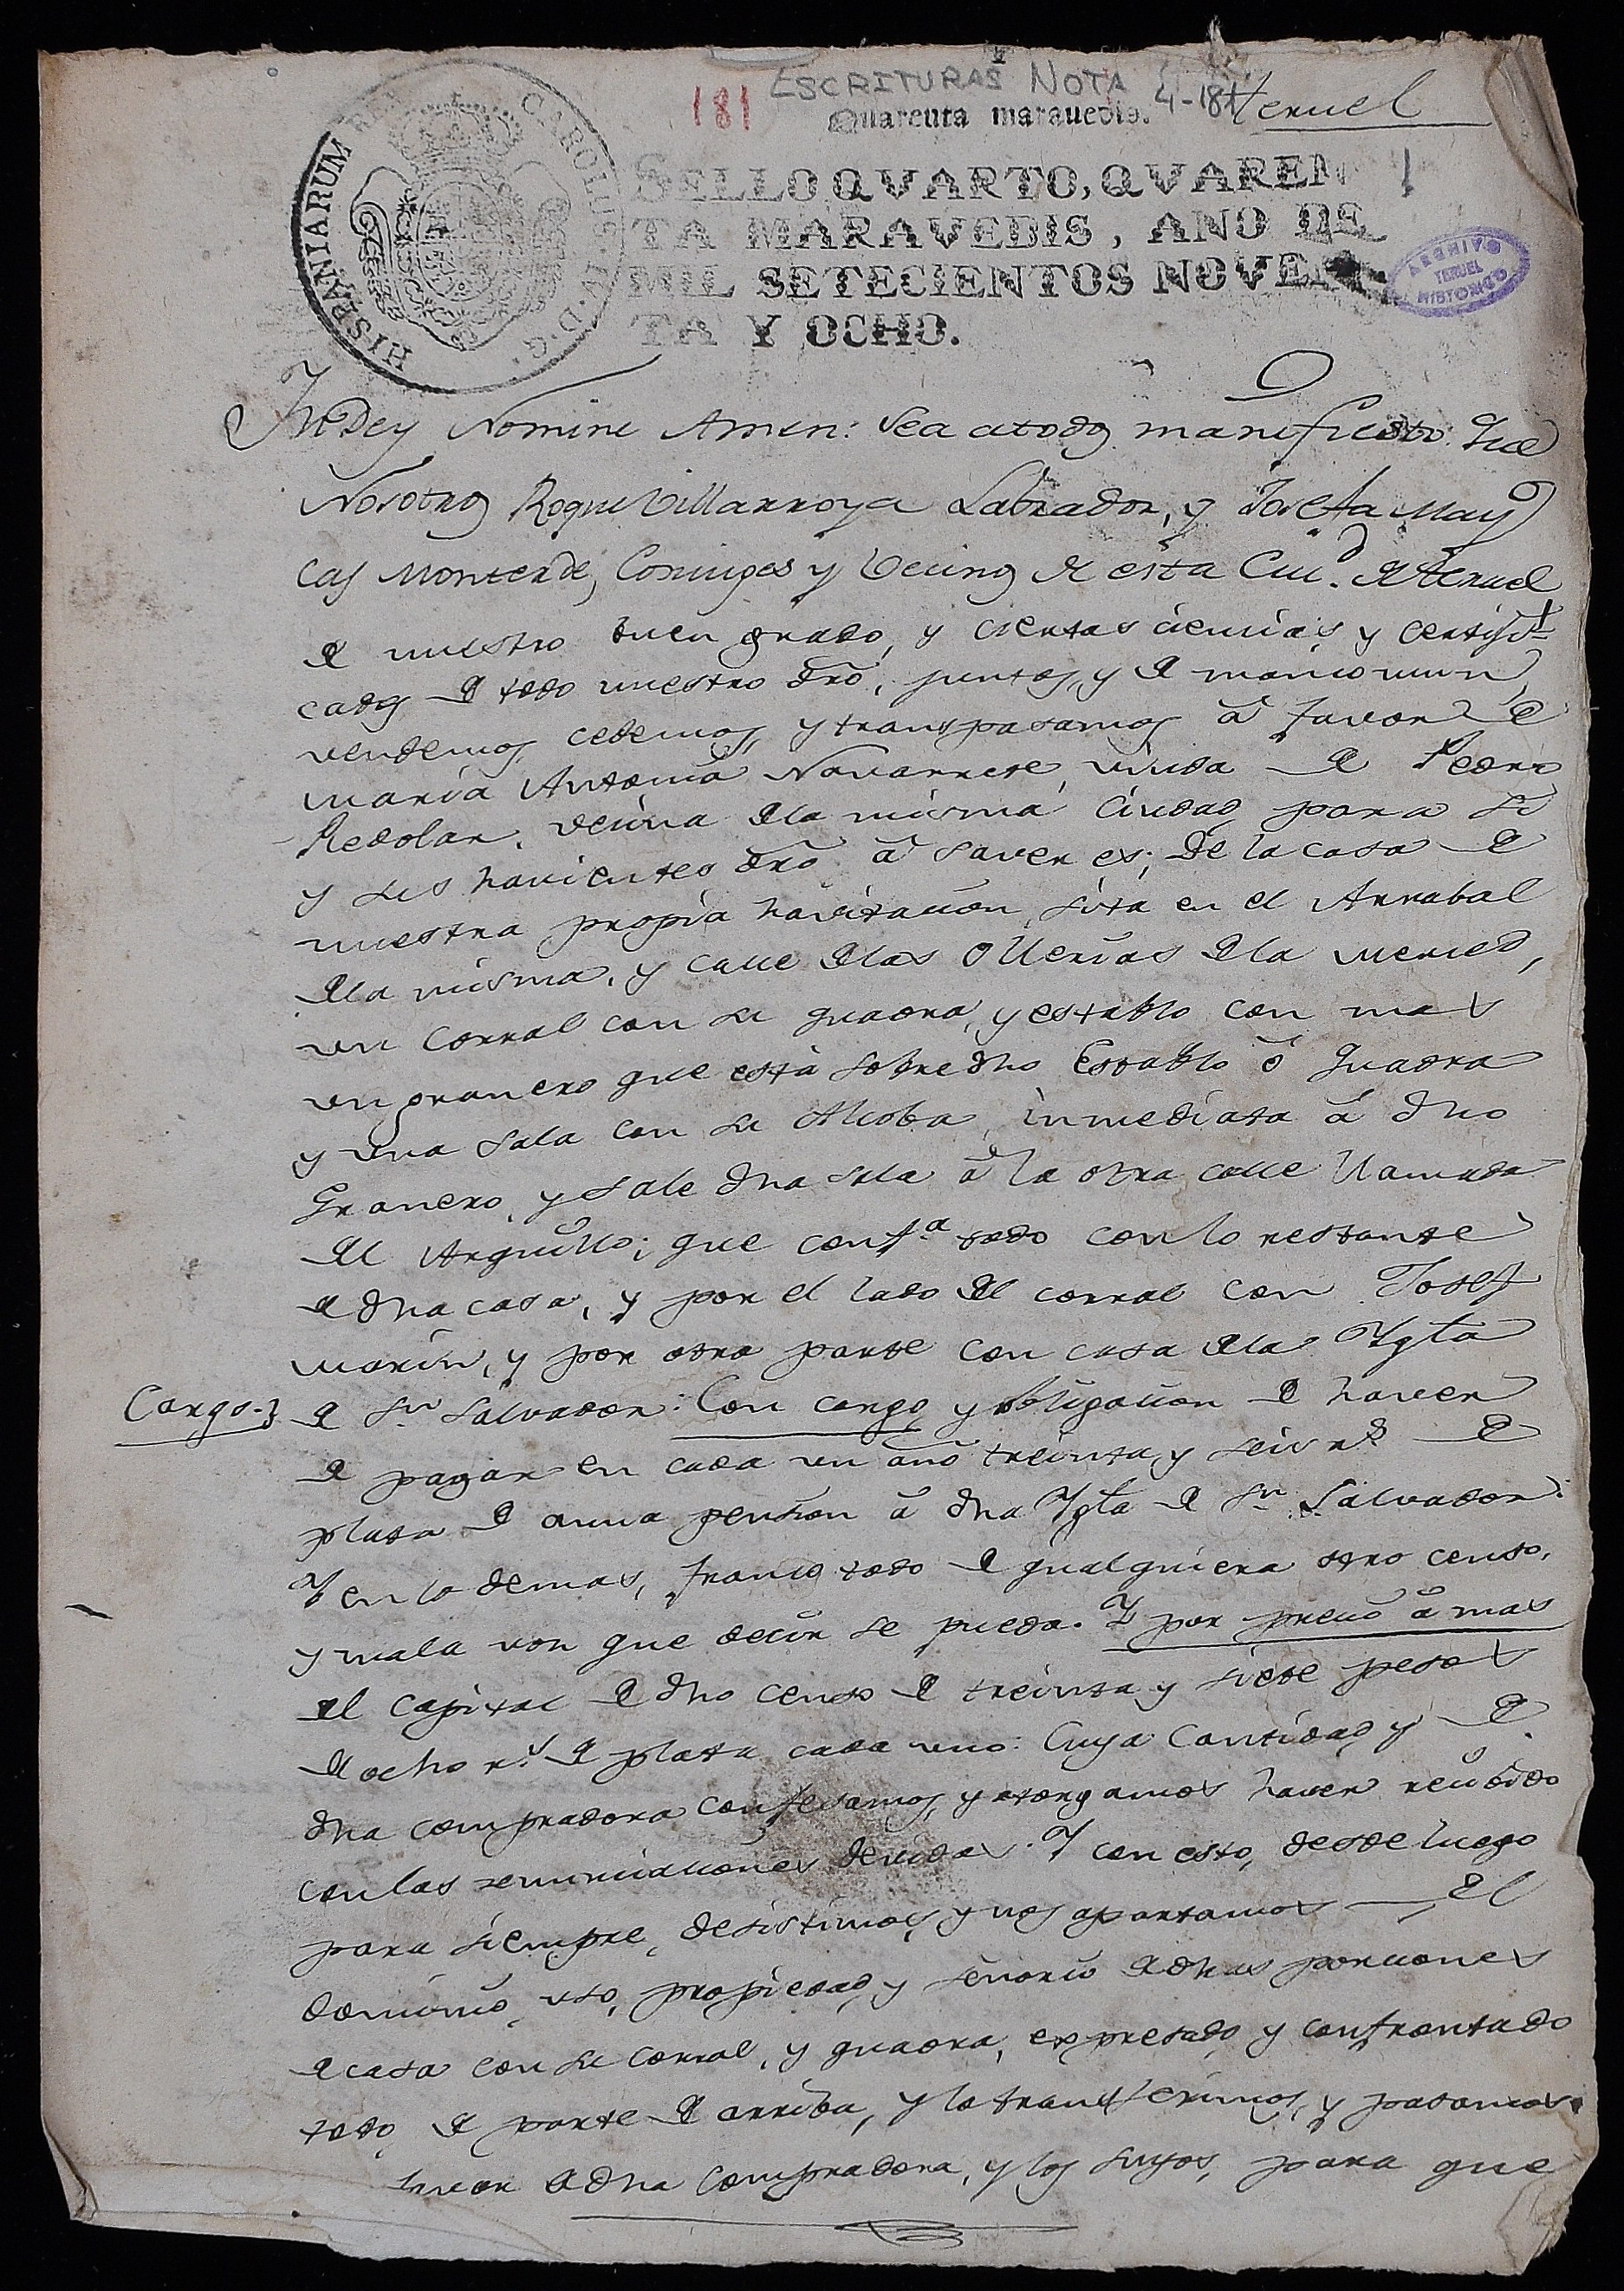 ESCRITURAS NOTA 4-181
181
Teruel
Quarenta maravedis.
1
SELLO QVARTO, QVAREN
TA MARAVEDIS, AÑO DE
MIL SETECIENTOS NOVEN
TA Y OCHO.
HISPANIARUM REX CAROLUS IV D. G.
ARCHIVO
TERUEL
HISTORICO
In Dey Nomine Amen: Sea atodos manifiesto: Que
Nosotros Roque Villarroya Labrador, y Josefa May
cas Monterde, Coniuges y Vecinos de esta Ciu.d de Teruel
de nuestro buen grado, y ciertas ciencias, y certifi
cados de todo nuestro dro, juntos, y de mancomun,
vendemos, cedemos, y transpasamos à favor de
Maria Antonia Navarrete, viuda de Pedro
Redolar, vecina dela misma Ciudad, para si
y sus havientes dro à saver es; De la casa de
nuestra propia havitacion, sita en el Arrabal
dela misma, y calle delas Ollerias dela Merced,
un Corral con su quadra, y establo con mas
un granero que està sobre dho Establo ò quadra
y una sala con su Alcoba, inmediata à dho
Granero, y sale dha sala à la otra calle llamada
del Arquillo; que conf.ta todo con lo restante
de dha casa, y por el lado del corral con Josef
Marin, y por otra parte con casa dela Ygla
Cargo.
de Sn Salvador: Con cargo, y obligacion de haver
de pagar en cada un año treinta, y seis rs de
plata de annua pension à dha Ygla de Sn Salvador:
Y en lo demas, franco todo de qualquiera otro censo,
y mala voz que decir se pueda. Y por precio à mas
del capital de dho censo de treinta y siete pesos
de ocho r.s de plata cada uno: Cuya Cantidad, y de
dha compradora confesamos, y otorgamos haver recivido
con las renunciaciones devidas: Y con esto, desde luego
para siempre, desistimos, y nos apartamos del
dominio, uso, propiedad, y señorio de dhas porciones
de casa con su corral, y quadra, expresado, y confrontado
todo de parte de arriba, y lo transferimos, y pasamos
favor de dha Compradora, y los suyos, para que